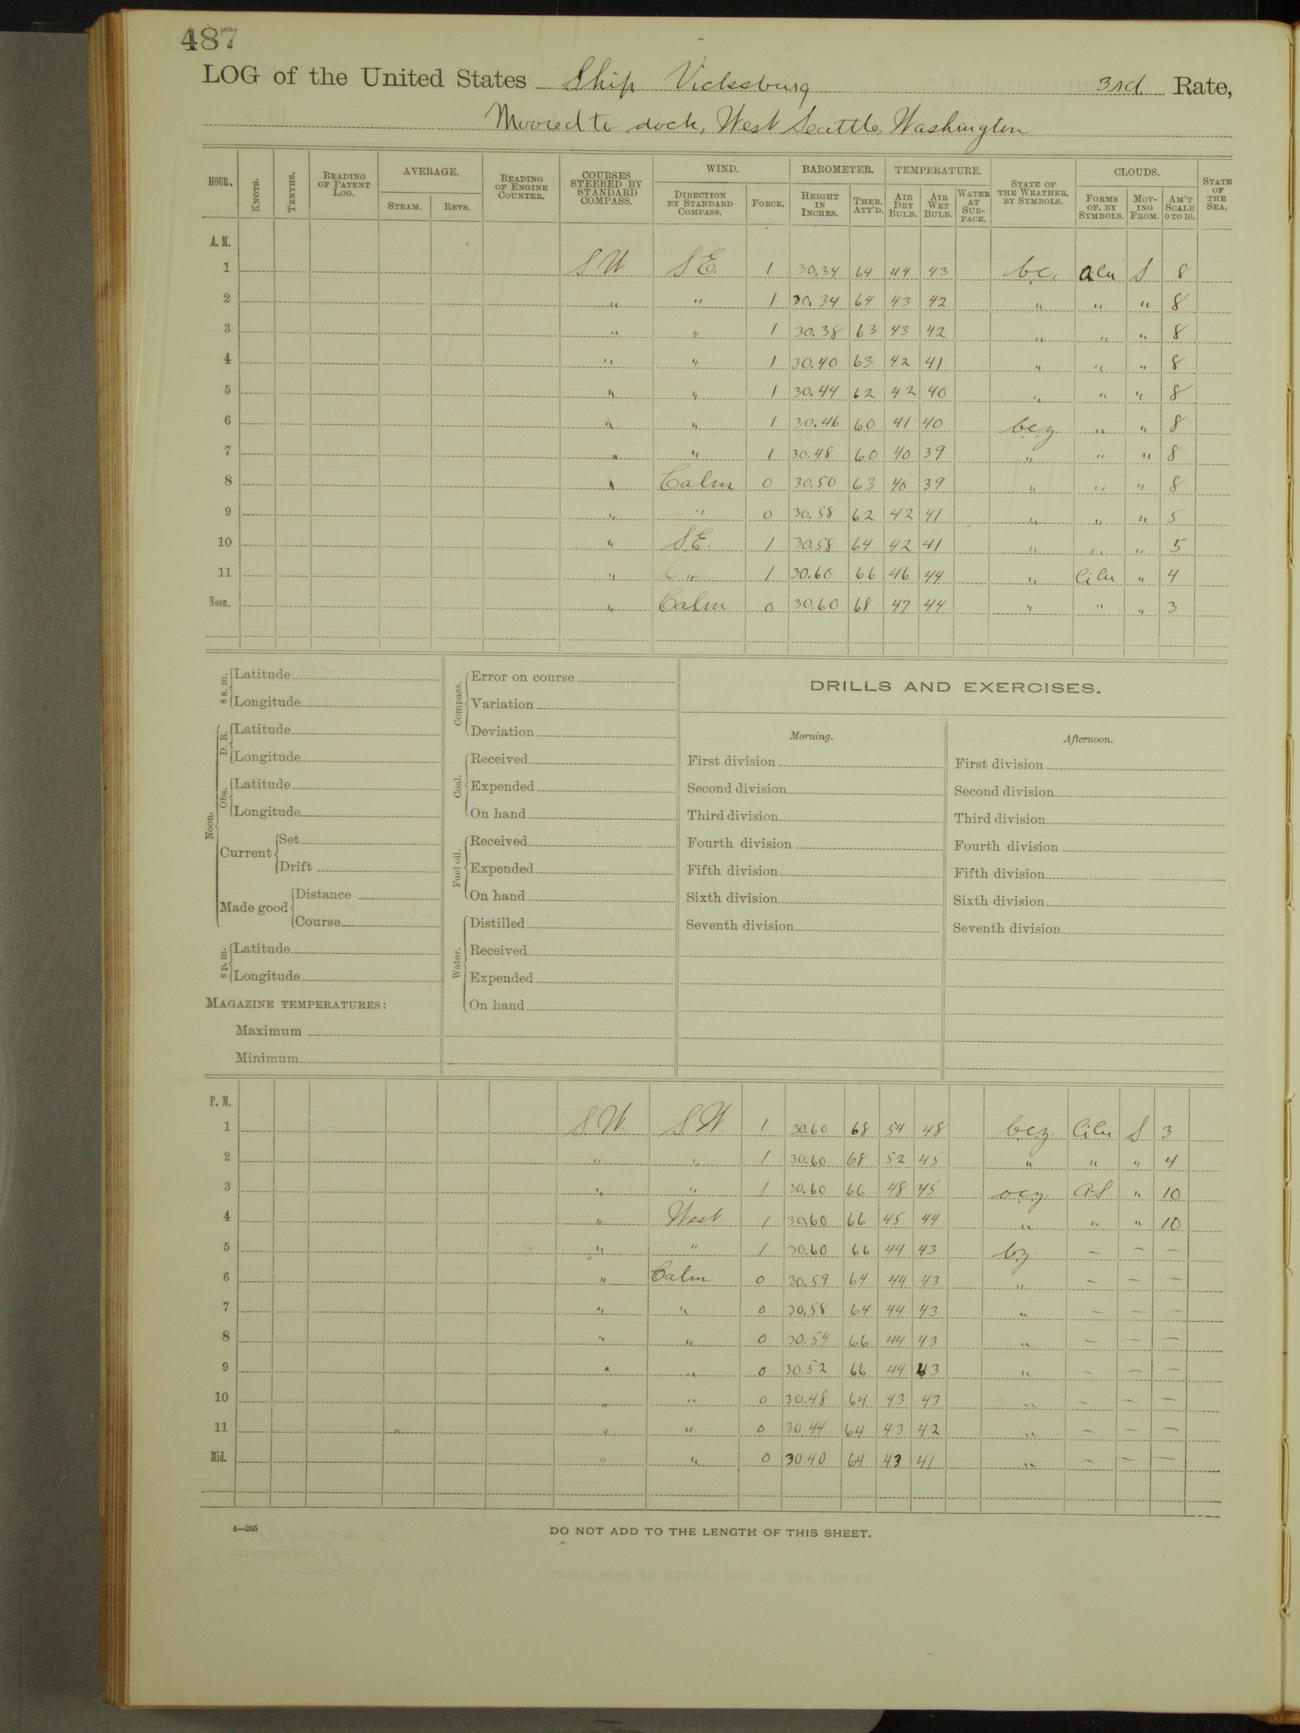 487
LOG of the United States Ship Vicksburg 3rd Rate,
Moored to dock, West Seattle, Washington
HOUR. KNOTS. TENTHS. READING OF PATENT LOG. AVERAGE. STEAM. REVS. READING OF ENGINE COUNTER. COURSES STEERED BY STANDARD COMPASS. WIND. DIRECTION BY STANDARD COMPASS. FORCE. BAROMETER. HEIGHT IN INCHES. THER. ATT'D. TEMPERATURE. AIR DRY BULB. AIR WET BULB. WATER AT SURFACE. STATE OF THE WEATHER, BY SYMBOLS. CLOUDS. FORMS OF, BY SYMBOLS. MOVING FROM. AM'T SCALE 0 TO 10. STATE OF THE SEA.
A. M.
1 SW SE 1 30.34 64 44 43 bc. acu S 8
2 " " 1 30.34 64 43 42 " " " 8
3 " " 1 30.38 63 43 42 " " " 8
4 " " 1 30.40 63 42 41 " " " 8
5 " " 1 30.44 62 42 40 " " " 8
6 " " 1 30.46 60 41 40 bcz " " 8
7 " " 1 30.48 60 40 39 " " " 8
8 " Calm 0 30.50 63 40 39 " " " 8
9 " " 0 30.58 62 42 41 " " " 5
10 " SE. 1 30.58 64 42 41 " " " 5
11 " " 1 30.60 66 46 44 " Cicu " 4
Noon. " Calm 0 30.60 68 47 44 " " " 3
8 a. m. Latitude
Longitude
Noon. D. R. Latitude
Longitude
Obs. Latitude
Longitude
Current Set
Drift
Made good Distance
Course
8 p. m. Latitude
Longitude
MAGAZINE TEMPERATURES:
Maximum
Minimum
Compass. Error on course
Variation
Deviation
Coal. Received
Expended
On hand
Fuel oil. Received
Expended
On hand
Water. Distilled
Received
Expended
On hand
DRILLS AND EXERCISES.
Morning. Afternoon.
First division First division
Second division Second division
Third division Third division
Fourth division Fourth division
Fifth division Fifth division
Sixth division Sixth division
Seventh division Seventh division
P. M.
1 SW SW 1 30.60 68 54 48 bcz Cicu S 3
2 " " 1 30.60 68 52 45 " " " 4
3 " " 1 30.60 66 48 45 ocz AS " 10
4 " West 1 30.60 66 45 44 " " " 10
5 " " 1 30.60 66 44 43 bz — — —
6 " Calm 0 30.59 64 44 43 " — — —
7 " " 0 30.58 64 44 43 " — — —
8 " " 0 30.54 66 44 43 " — — —
9 " " 0 30.52 66 44 43 " — — —
10 " " 0 30.48 64 43 43 " — — —
11 " " 0 30.44 64 43 42 " — — —
Mid. " " 0 30.40 64 43 41 " — — —
4—265
DO NOT ADD TO THE LENGTH OF THIS SHEET.